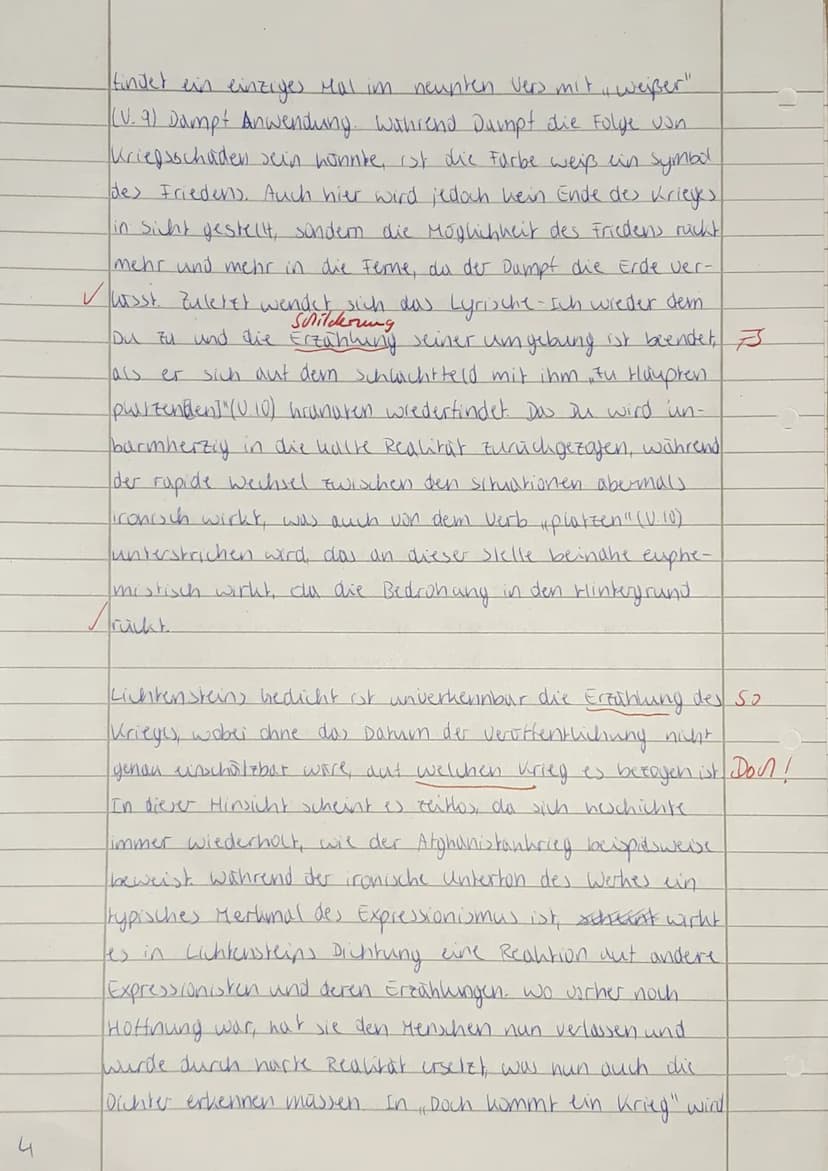 findet ein einziges Mal im neunten Vers mit „weißer"
(V. 9) Dampf Anwendung. Während Dampf die Folge von
Kriegsschäden sein könnte, ist die Farbe weiß ein Symbol
des Friedens. Auch hier wird jedoch kein Ende des Krieges
in Sicht gestellt, sondern die Möglichkeit des Friedens rückt
mehr und mehr in die Ferne, da der Dampf die Erde ver-
✓ lässt. Zuletzt wendet sich das Lyrische-Ich wieder dem
Schilderung
Du zu und die Erzählung seiner Umgebung ist beendet,
als er sich auf dem Schlachtfeld mit ihm „zu Häupten
platzen[den]"(V.10) Granaten wiederfindet. Das Du wird un-
barmherzig in die kalte Realität zurückgezogen, während
der rapide Wechsel zwischen den Situationen abermals
ironisch wirkt, was auch von dem Verb „platzen"(V.10)
unterstrichen wird, das an dieser Stelle beinahe euphe-
mistisch wirkt, da die Bedrohung in den Hintergrund
rückt.
Lichtensteins Gedicht ist unverkennbar die Erzählung des so
Krieges, wobei ohne das Datum der Veröffentlichung nicht
genau einschätzbar wäre, auf welchen Krieg es bezogen ist Doch!
In dieser Hinsicht scheint es zeitlos, da sich Geschichte
immer wiederholt, wie der Afghanistankrieg beispielsweise
beweist. Während der ironische Unterton des Werkes ein
typisches Merkmal des Expressionismus ist, wirkt
es in Lichtensteins Dichtung eine Reaktion auf andere
Expressionisten und deren Erzählungen. Wo vorher noch
Hoffnung war, hat sie den Menschen nun verlassen und
wurde durch harte Realität ersetzt, was nun auch die
Dichter erkennen müssen. In „Doch kommt ein Krieg" wird
4